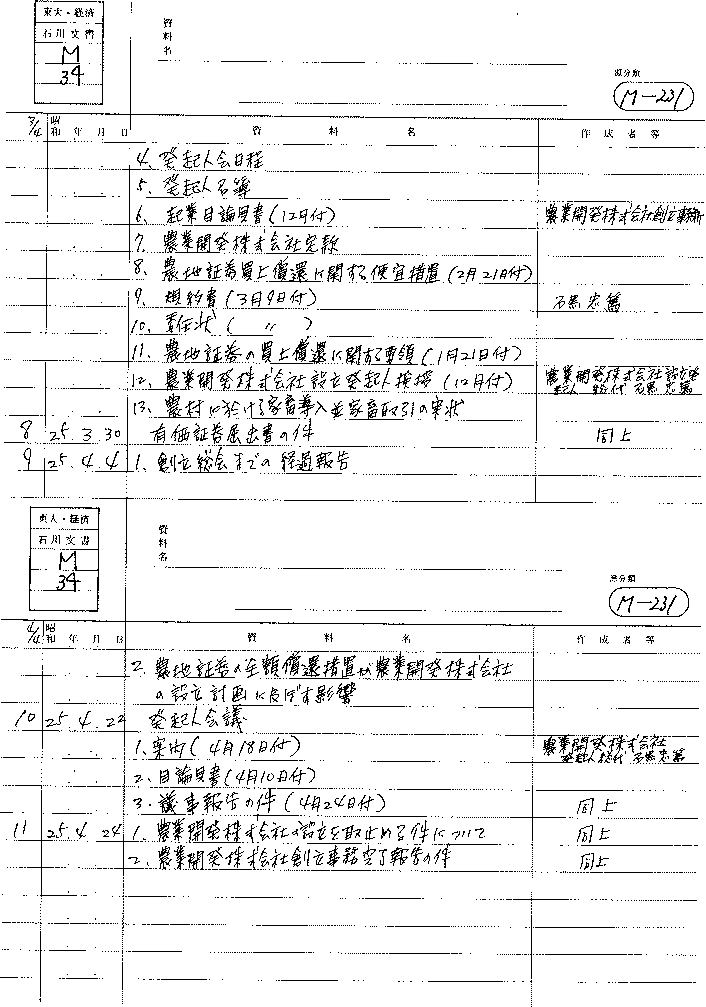 東大・経済
石川文書
M
34
資料名
原分類
M-231
3/4 昭和 年 月 日 資 料 名 作成者等
4、発起人会日程
5、発起人名簿
6、起業目論見書(12月付) 農業開発株式会社創立事務所
7、農業開発株式会社定款
8、農地証券買上償還に関する便宜措置(2月21日付)
9、規約書(3月9日付) 石黒忠篤
10、委任状(〃)
11、農地証券の買上償還に関する要領(1月21日付)
12、農業開発株式会社設立発起人挨拶(12月付) 農業開発株式会社設立発起人 総代 石黒忠篤
13、農村に於ける家畜導入並家畜取引の実状
8 25.3.30 有価証券届出書の件 同上
9 25.4.4 1、創立総会までの経過報告
東大・経済
石川文書
M
34
資料名
原分類
M-231
4/4 昭和 年 月 日 資 料 名 作成者等
2、農地証券の全額償還措置が農業開発株式会社
の設立計画に及ぼす影響
10 25.4.22 発起人会議
1、案内(4月18日付) 農業開発株式会社 発起人総代 石黒忠篤
2、目論見書(4月10日付)
3、議事報告の件(4月24日付) 同上
11 25.4.24 1、農業開発株式会社の設立を取止める件について 同上
2、農業開発株式会社創立事務完了報告の件 同上